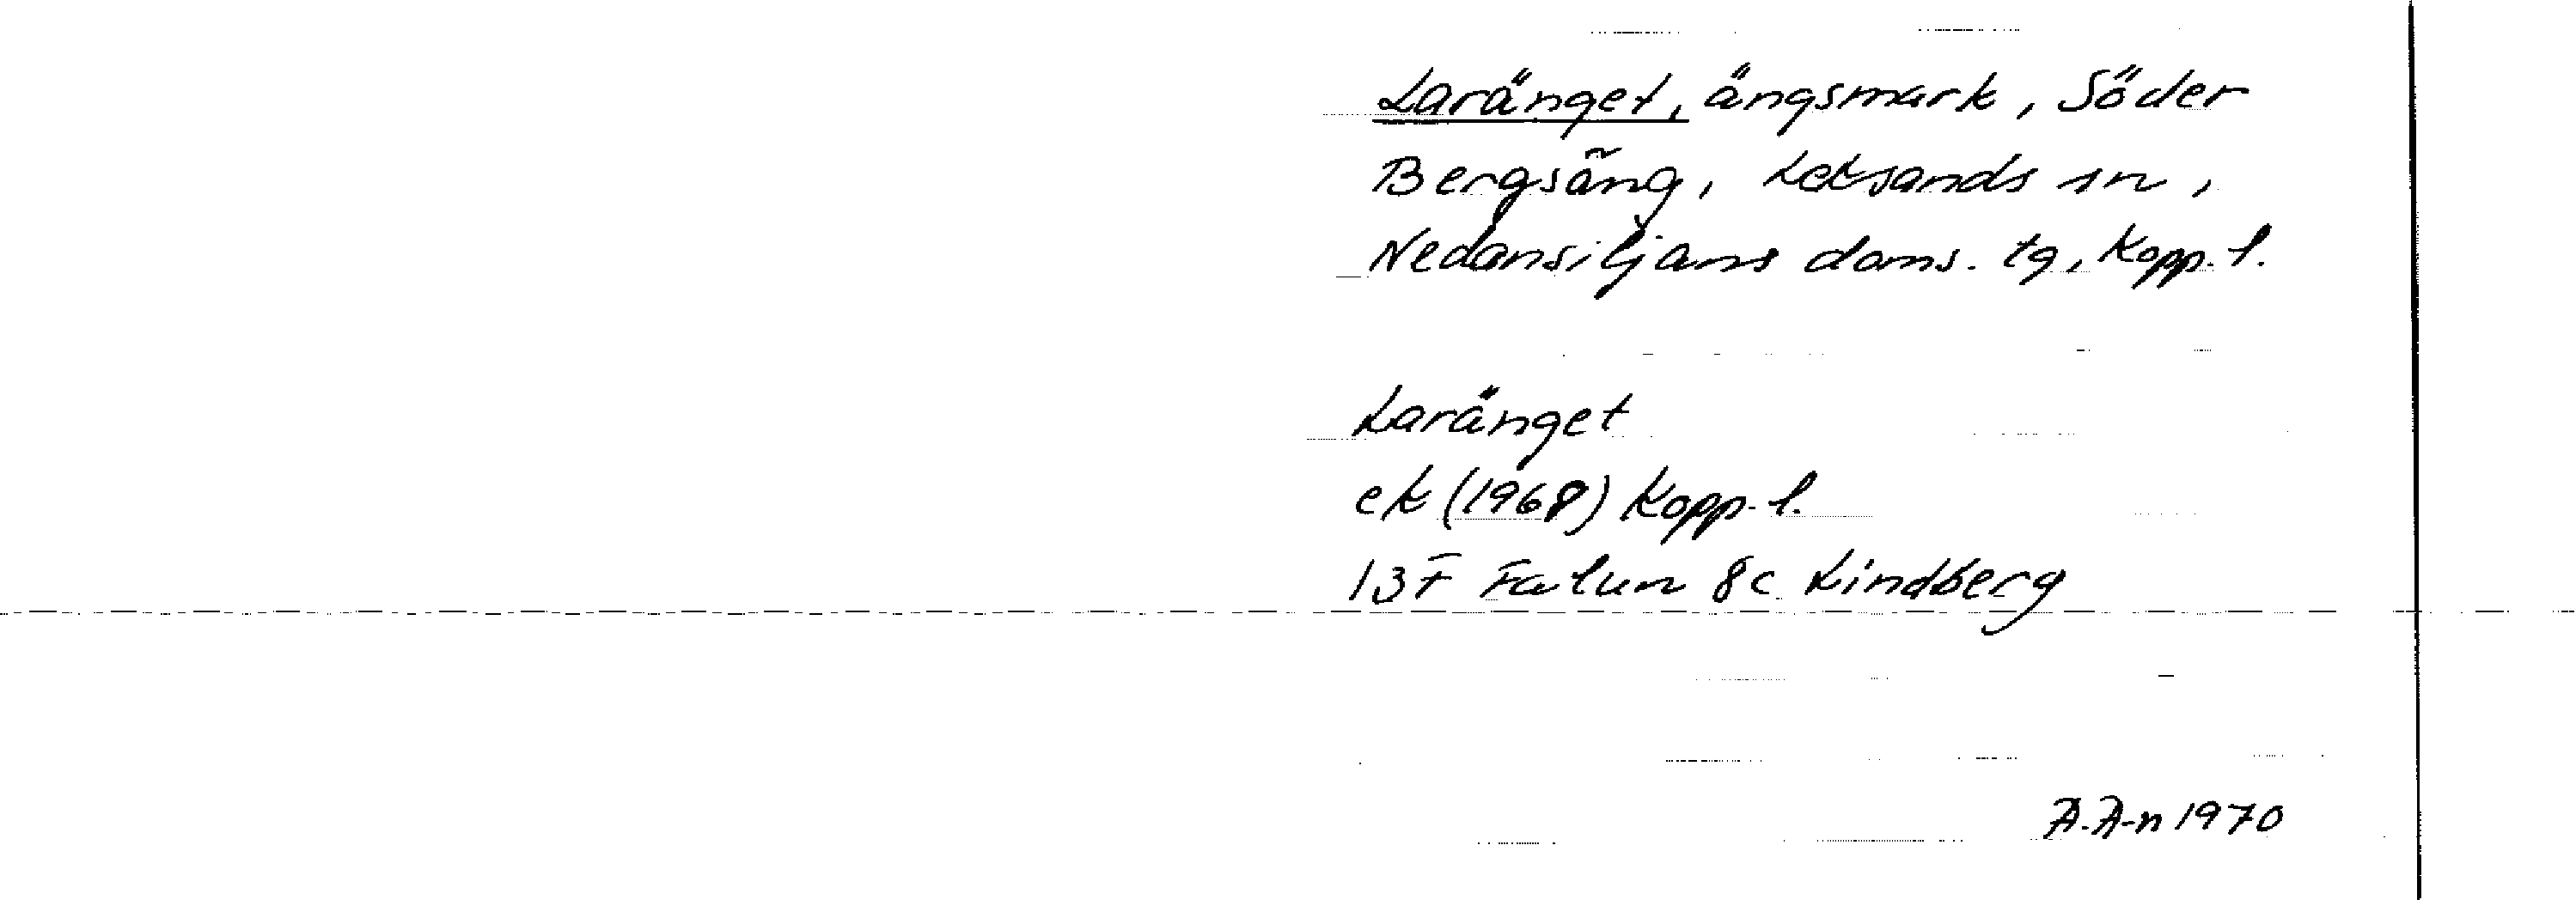 Laränget, ängsmark, Söder
Bergsäng, Leksands sn,
Nedansiljans doms. tg, Kopp. l.
Laränget
ek (1968) Kopp. l.
13F Falun 8c Lindberg
A.A-n 1970